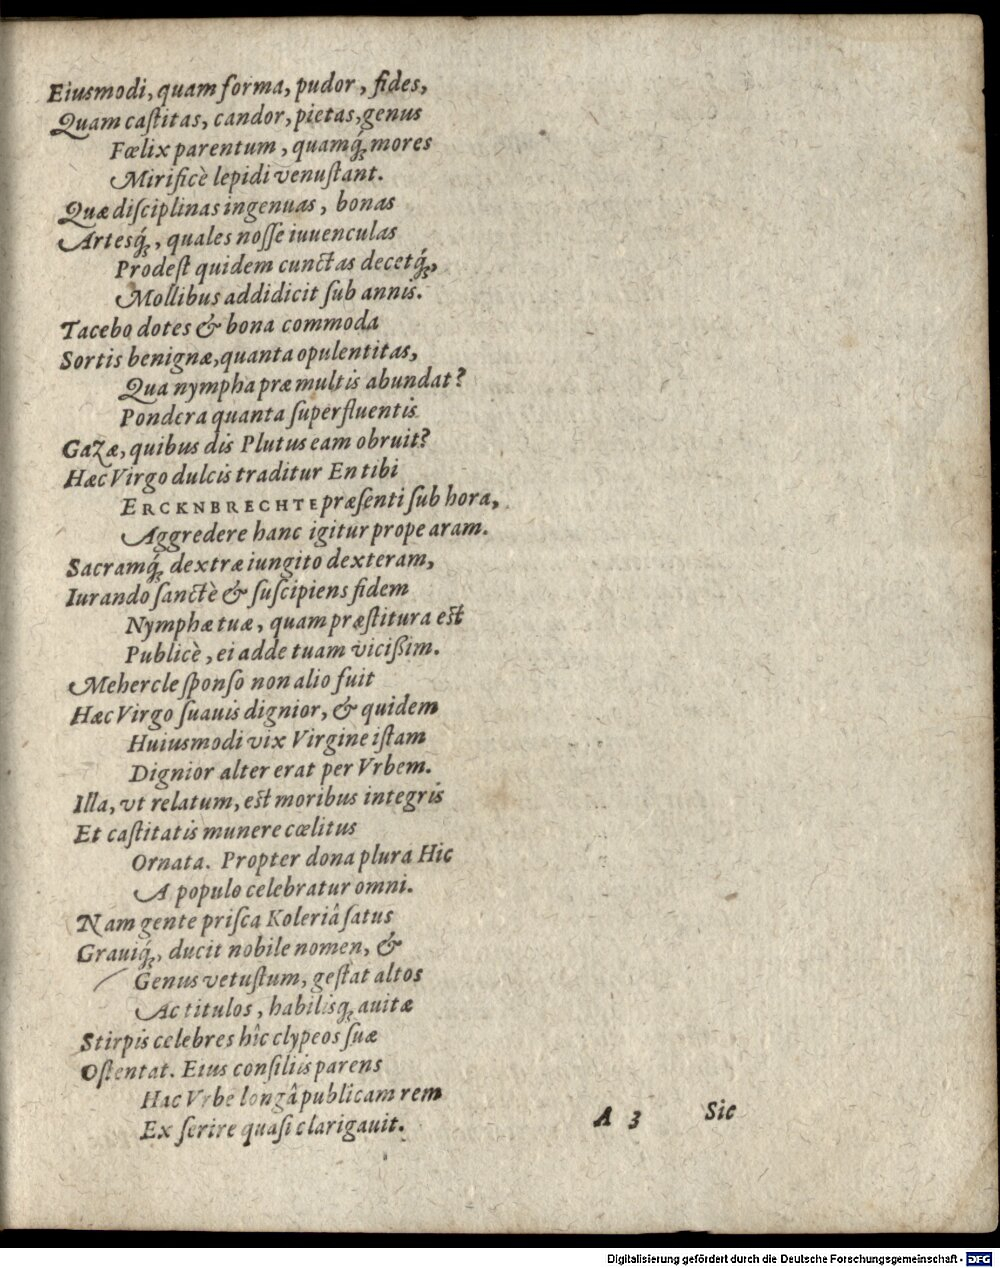 Eiusmodi, quam forma, pudor, fides,
Quam caſtitas, candor, pietas, genus
Fœlix parentum, quamq́; mores
Mirificè lepidi venuſtant.
Quæ diſciplinas ingenuas, bonas
Artesq́;, quales noſſe iuuenculas
Prodeſt quidem cunctas decetq́;,
Mollibus addidicit ſub annis.
Tacebo dotes & bona commoda
Sortis benignæ, quanta opulentitas,
Qua nympha præ multis abundat?
Pondera quanta ſuperfluentis
Gazæ, quibus dis Plutus eam obruit?
Hæc Virgo dulcis traditur En tibi
ERCKNBRECHTE præſenti ſub hora,
Aggredere hanc igitur prope aram.
Sacramq́; dextræ iungito dexteram,
Iurando ſanctè & ſuſcipiens fidem
Nymphæ tuæ, quam præſtitura eſt
Publicè, ei adde tuam viciſſim.
Mehercle ſponſo non alio fuit
Hæc Virgo ſuauis dignior, & quidem
Huiusmodi vix Virgine iſtam
Dignior alter erat per Vrbem.
Illa, vt relatum, eſt moribus integris
Et caſtitatis munere cœlitus
Ornata. Propter dona plura Hic
A populo celebratur omni.
Nam gente priſca Koleriâ ſatus
Grauiq́;, ducit nobile nomen, &
Genus vetuſtum, geſtat altos
Ac titulos, habilisq; auitæ
Stirpis celebres hîc clypeos ſuæ
Oſtentat. Eius conſiliis parens
Hac Vrbe longâ publicam rem
Ex ſerire quaſi clarigauit.
A 3 Sic
Digitalisierung gefördert durch die Deutsche Forschungsgemeinschaft - DFG